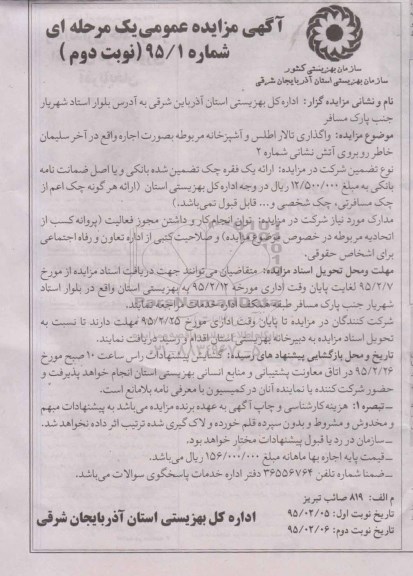 آگهی مزایده عمومی یک مرحله ای
شماره ۹۵/۱ (نوبت دوم)
سازمان بهزیستی کشور
سازمان بهزیستی استان آذربایجان شرقی
نام و نشانی مزایده گزار: اداره کل بهزیستی استان آذرباین شرقی به آدرس بلوار استاد شهریار
جنب پارک مسافر
موضوع مزایده: واگذاری تالار اطلس و آشپزخانه مربوطه بصورت اجاره واقع در آخر سلیمان
خاطر روبروی آتش نشانی شماره ۲
نوع تضمین شرکت در مزایده: ارائه یک فقره چک تضمین شده بانکی و یا اصل ضمانت نامه
بانکی به مبلغ ۱۲/۵۰۰/۰۰۰ ریال در وجه اداره کل بهزیستی استان (ارائه هر گونه چک اعم از
چک مسافرتی، چک شخصی و... قابل قبول نمی‌باشد.)
مدارک مورد نیاز شرکت در مزایده: توان انجام کار و داشتن مجوز فعالیت (پروانه کسب از
اتحادیه مربوطه در خصوص موضوع مزایده) و صلاحیت کتبی از اداره تعاون و رفاه اجتماعی
برای اشخاص حقوقی.
مهلت ومحل تحویل اسناد مزایده: متقاضیان می‌توانند جهت دریافت اسناد مزایده از مورخ
۹۵/۲/۷ لغایت پایان وقت اداری مورخه ۹۵/۲/۱۲ به بهزیستی استان واقع در بلوار استاد
شهریار جنب پارک مسافر طبقه همکف اداره خدمات مراجعه نمایند.
شرکت کنندگان در مزایده تا پایان وقت اداری مورخ ۹۵/۲/۲۵ مهلت دارند تا نسبت به
تحویل اسناد مزایده به دبیرخانه بهزیستی استان اقدام و رسید دریافت نمایند.
تاریخ و محل بازگشایی پیشنهاد های رسیده: گشایش پیشنهادات راس ساعت ۱۰ صبح مورخ
۹۵/۲/۲۶ در اتاق معاونت پشتیبانی و منابع انسانی بهزیستی استان انجام خواهد پذیرفت و
حضور شرکت کننده یا نماینده آنان در کمیسیون با معرفی نامه بلامانع است.
ـ تبصره۱: هزینه کارشناسی و چاپ آگهی به عهده برنده مزایده می‌باشد به پیشنهادات مبهم
و مخدوش و مشروط و بدون سپرده قلم خورده و لاک گیری شده ترتیب اثر داده نخواهد شد.
ـ سازمان در رد یا قبول پیشنهادات مختار خواهد بود.
ـ قیمت پایه اجاره بها ماهانه مبلغ ۱۵۶/۰۰۰/۰۰۰ ریال می‌باشد.
ـ ضمنا شماره تلفن ۳۶۵۵۶۷۶۴ دفتر اداره خدمات پاسخگوی سوالات می‌باشد.
م الف: ۸۱۹ صائب تبریز
تاریخ نوبت اول: ۹۵/۰۲/۰۵
تاریخ نوبت دوم: ۹۵/۰۲/۰۶
اداره کل بهزیستی استان آذربایجان شرقی